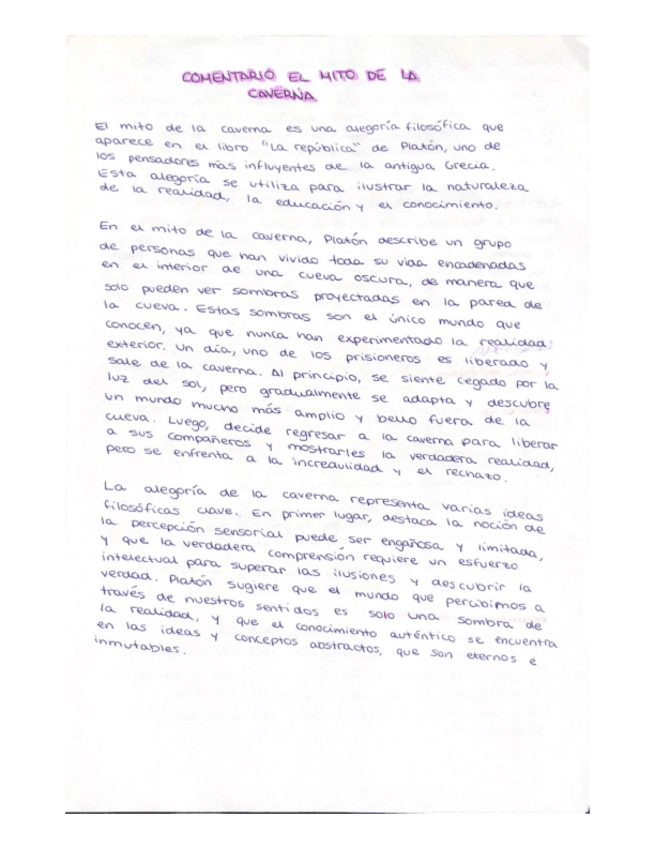 COMENTARIO EL MITO DE LA
CAVERNA
El mito de la caverna es una alegoría filosófica que
aparece en el libro "La república" de Platón, uno de
los pensadores más influyentes de la antigua Grecia.
Esta alegoría se utiliza para ilustrar la naturaleza
de la realidad, la educación y el conocimiento.
En el mito de la caverna, Platón describe un grupo
de personas que han vivido toda su vida encadenadas
en el interior de una cueva oscura, de manera que
solo pueden ver sombras proyectadas en la pared de
la cueva. Estas sombras son el único mundo que
conocen, ya que nunca han experimentado la realidad
exterior. Un día, uno de los prisioneros es liberado y
sale de la caverna. Al principio, se siente cegado por la
luz del sol, pero gradualmente se adapta y descubre
un mundo mucho más amplio y bello fuera de la
cueva. Luego, decide regresar a la caverna para liberar
a sus compañeros y mostrarles la verdadera realidad,
pero se enfrenta a la incredulidad y el rechazo.
La alegoría de la caverna representa varias ideas
filosóficas clave. En primer lugar, destaca la noción de
la percepción sensorial puede ser engañosa y limitada,
y que la verdadera comprensión requiere un esfuerzo
intelectual para superar las ilusiones y descubrir la
verdad. Platón sugiere que el mundo que percibimos a
través de nuestros sentidos es solo una sombra de
la realidad, y que el conocimiento auténtico se encuentra
en las ideas y conceptos abstractos, que son eternos e
inmutables.